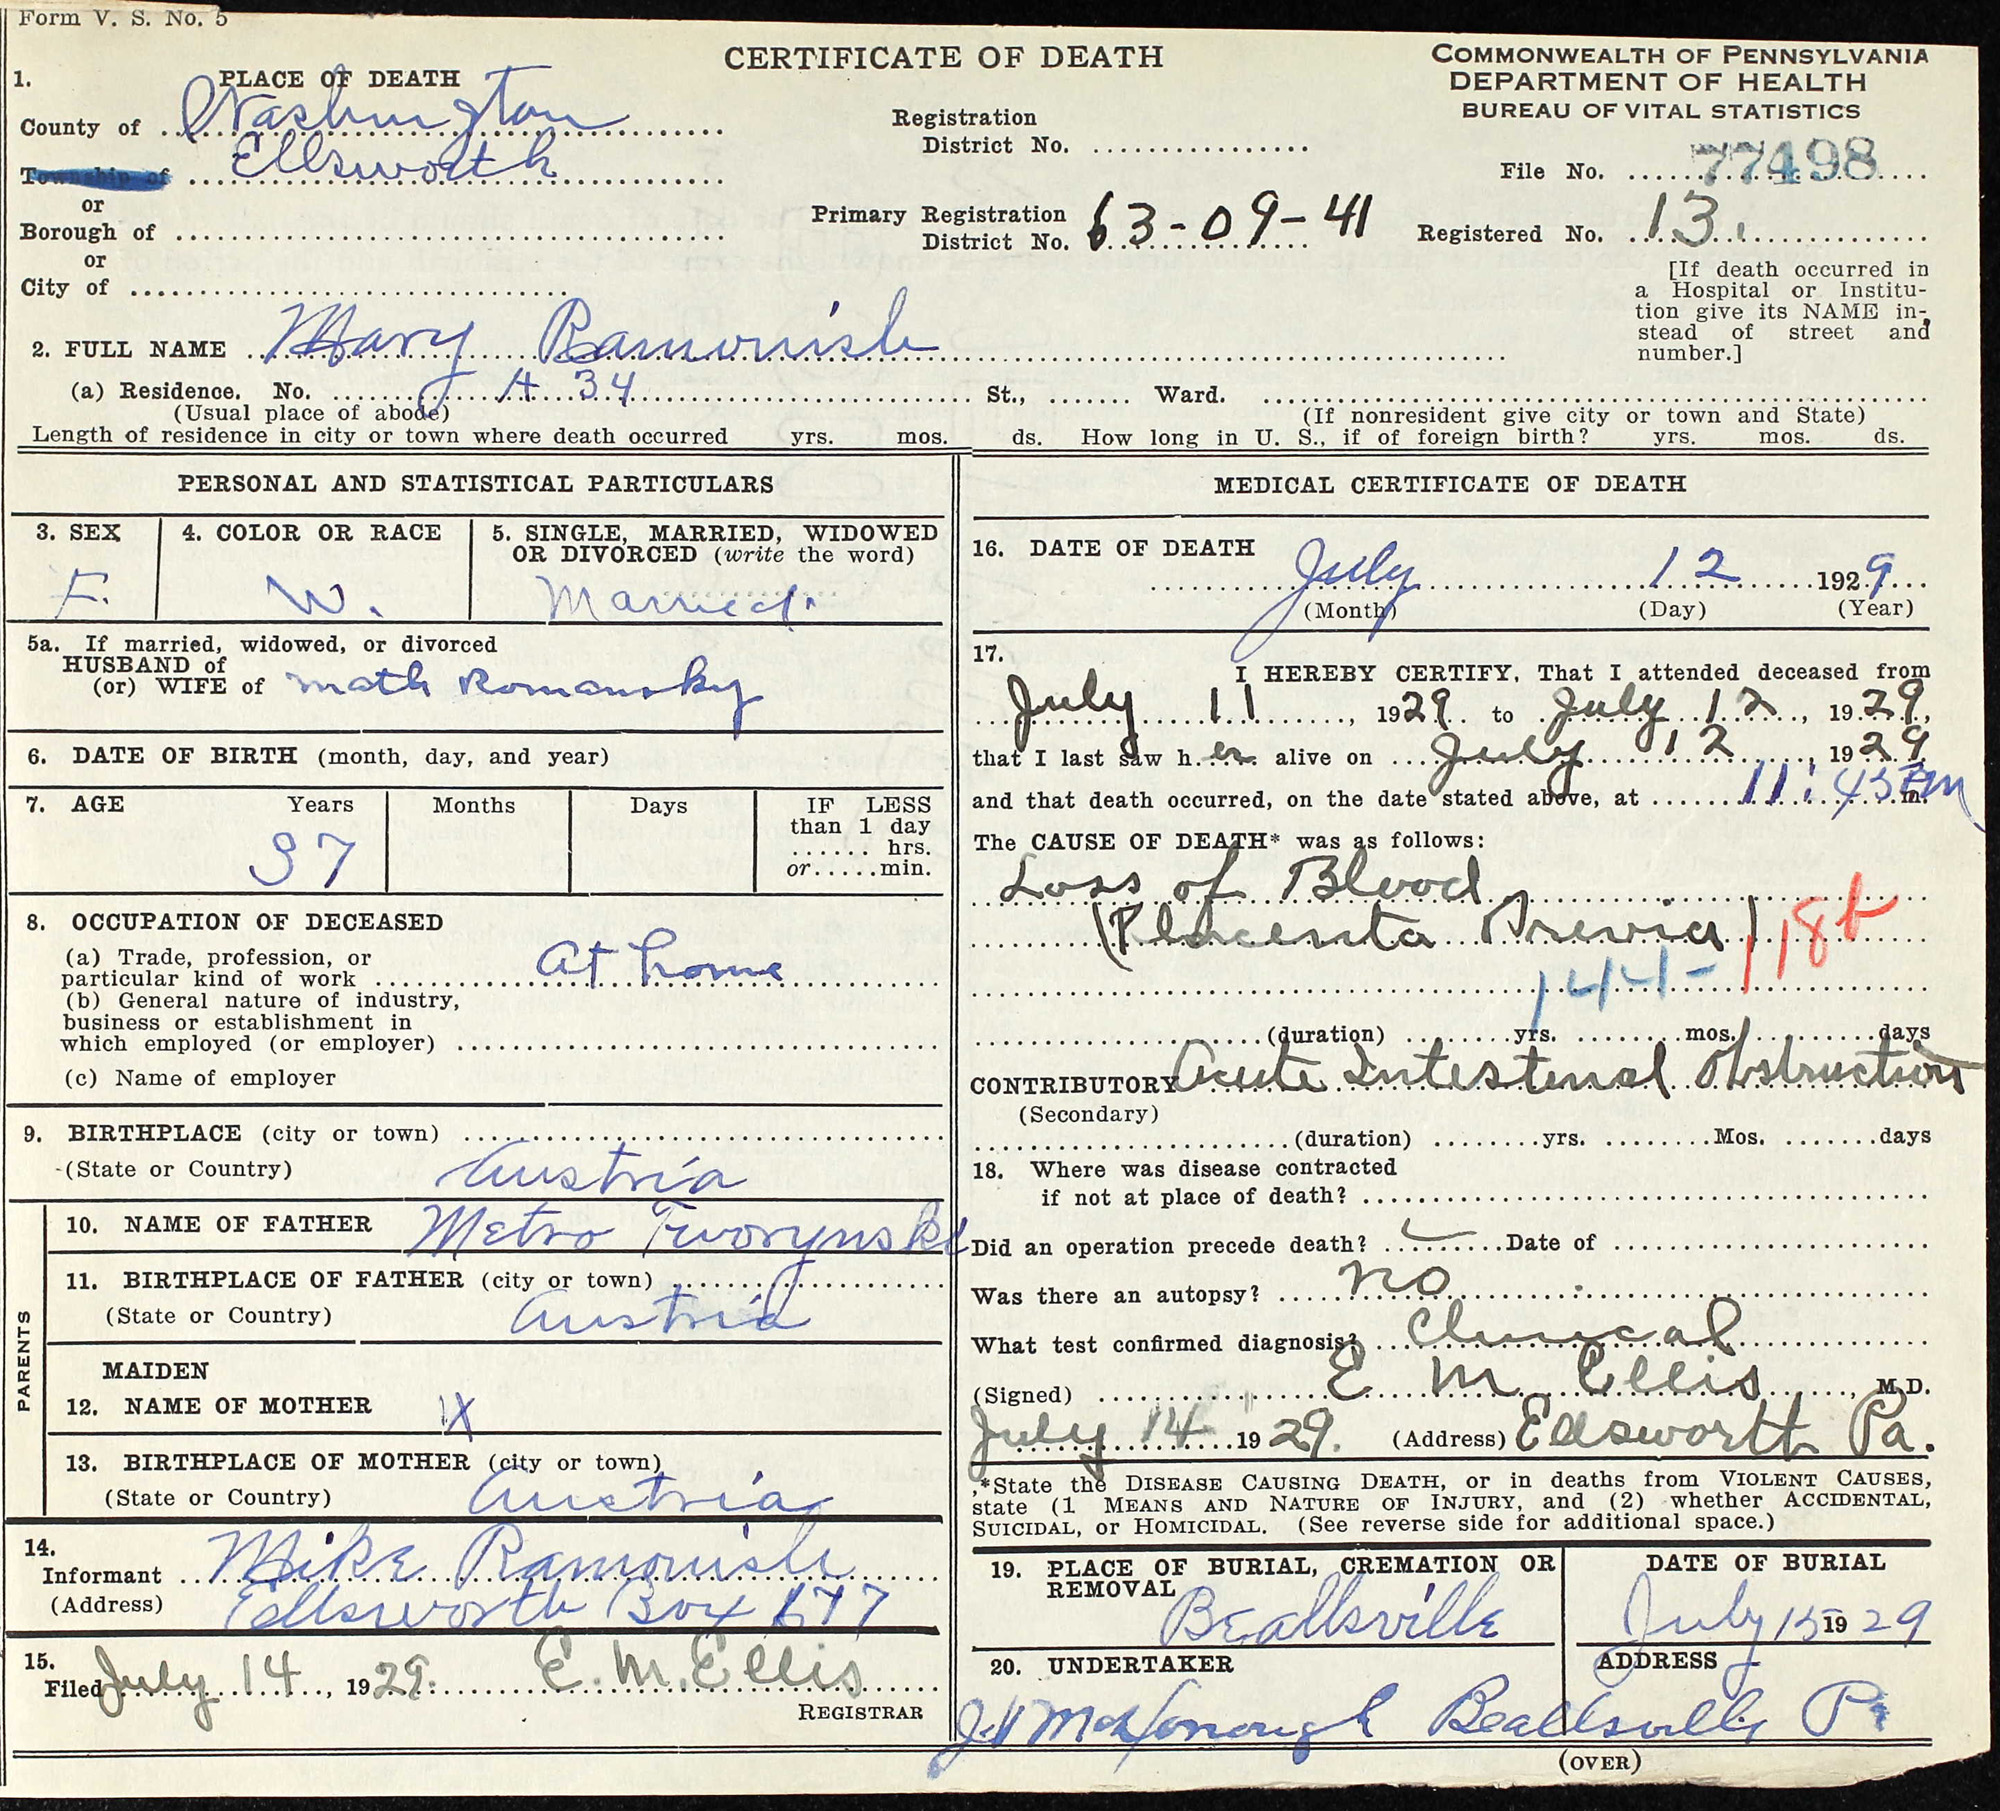 Form V. S. No. 5
CERTIFICATE OF DEATH
COMMONWEALTH OF PENNSYLVANIA
DEPARTMENT OF HEALTH
BUREAU OF VITAL STATISTICS
1. PLACE OF DEATH
County of Washington
Township of Ellsworth
or
Borough of
or
City of
Registration
District No.
Primary Registration
District No. 63-09-41
File No. 77498
Registered No. 13.
[If death occurred in
a Hospital or Institu-
tion give its NAME in-
stead of street and
number.]
2. FULL NAME Mary Ramonish
(a) Residence. No. H 34 St., Ward.
(Usual place of abode) (If nonresident give city or town and State)
Length of residence in city or town where death occurred yrs. mos. ds. How long in U. S., if of foreign birth? yrs. mos. ds.
PERSONAL AND STATISTICAL PARTICULARS
3. SEX
F.
4. COLOR OR RACE
W.
5. SINGLE, MARRIED, WIDOWED
OR DIVORCED (write the word)
Married.
5a. If married, widowed, or divorced
HUSBAND of
(or) WIFE of Math Romansky
6. DATE OF BIRTH (month, day, and year)
7. AGE Years Months Days IF LESS
than 1 day
hrs.
or min.
37
8. OCCUPATION OF DECEASED
(a) Trade, profession, or
particular kind of work At home
(b) General nature of industry,
business or establishment in
which employed (or employer)
(c) Name of employer
9. BIRTHPLACE (city or town)
(State or Country) Austria
PARENTS
10. NAME OF FATHER Metro Tworynski
11. BIRTHPLACE OF FATHER (city or town)
(State or Country) Austria
MAIDEN
12. NAME OF MOTHER X
13. BIRTHPLACE OF MOTHER (city or town)
(State or Country) Austria
14.
Informant Mike Ramonish
(Address) Ellsworth Box 677
15.
Filed July 14, 1929. E. M. Ellis
REGISTRAR
MEDICAL CERTIFICATE OF DEATH
16. DATE OF DEATH
July 12 1929
(Month) (Day) (Year)
17.
I HEREBY CERTIFY, That I attended deceased from
July 11, 1929 to July 12, 1929,
that I last saw her alive on July 12, 1929
and that death occurred, on the date stated above, at 11:45 m.
The CAUSE OF DEATH* was as follows:
Loss of Blood
(Placenta Previa)
144- 118b
(duration) yrs. mos. days
CONTRIBUTORY Acute Intestinal Obstruction
(Secondary)
(duration) yrs. Mos. days
18. Where was disease contracted
if not at place of death?
Did an operation precede death? Date of
Was there an autopsy? no
What test confirmed diagnosis? Clinical
(Signed) E M Ellis, M.D.
July 14 1929. (Address) Ellsworth Pa.
*State the DISEASE CAUSING DEATH, or in deaths from VIOLENT CAUSES,
state (1 MEANS AND NATURE OF INJURY, and (2) whether ACCIDENTAL,
SUICIDAL, or HOMICIDAL. (See reverse side for additional space.)
19. PLACE OF BURIAL, CREMATION OR
REMOVAL
Beallsville
DATE OF BURIAL
July 15 1929
20. UNDERTAKER
McDonough
ADDRESS
Beallsville Pa
(OVER)